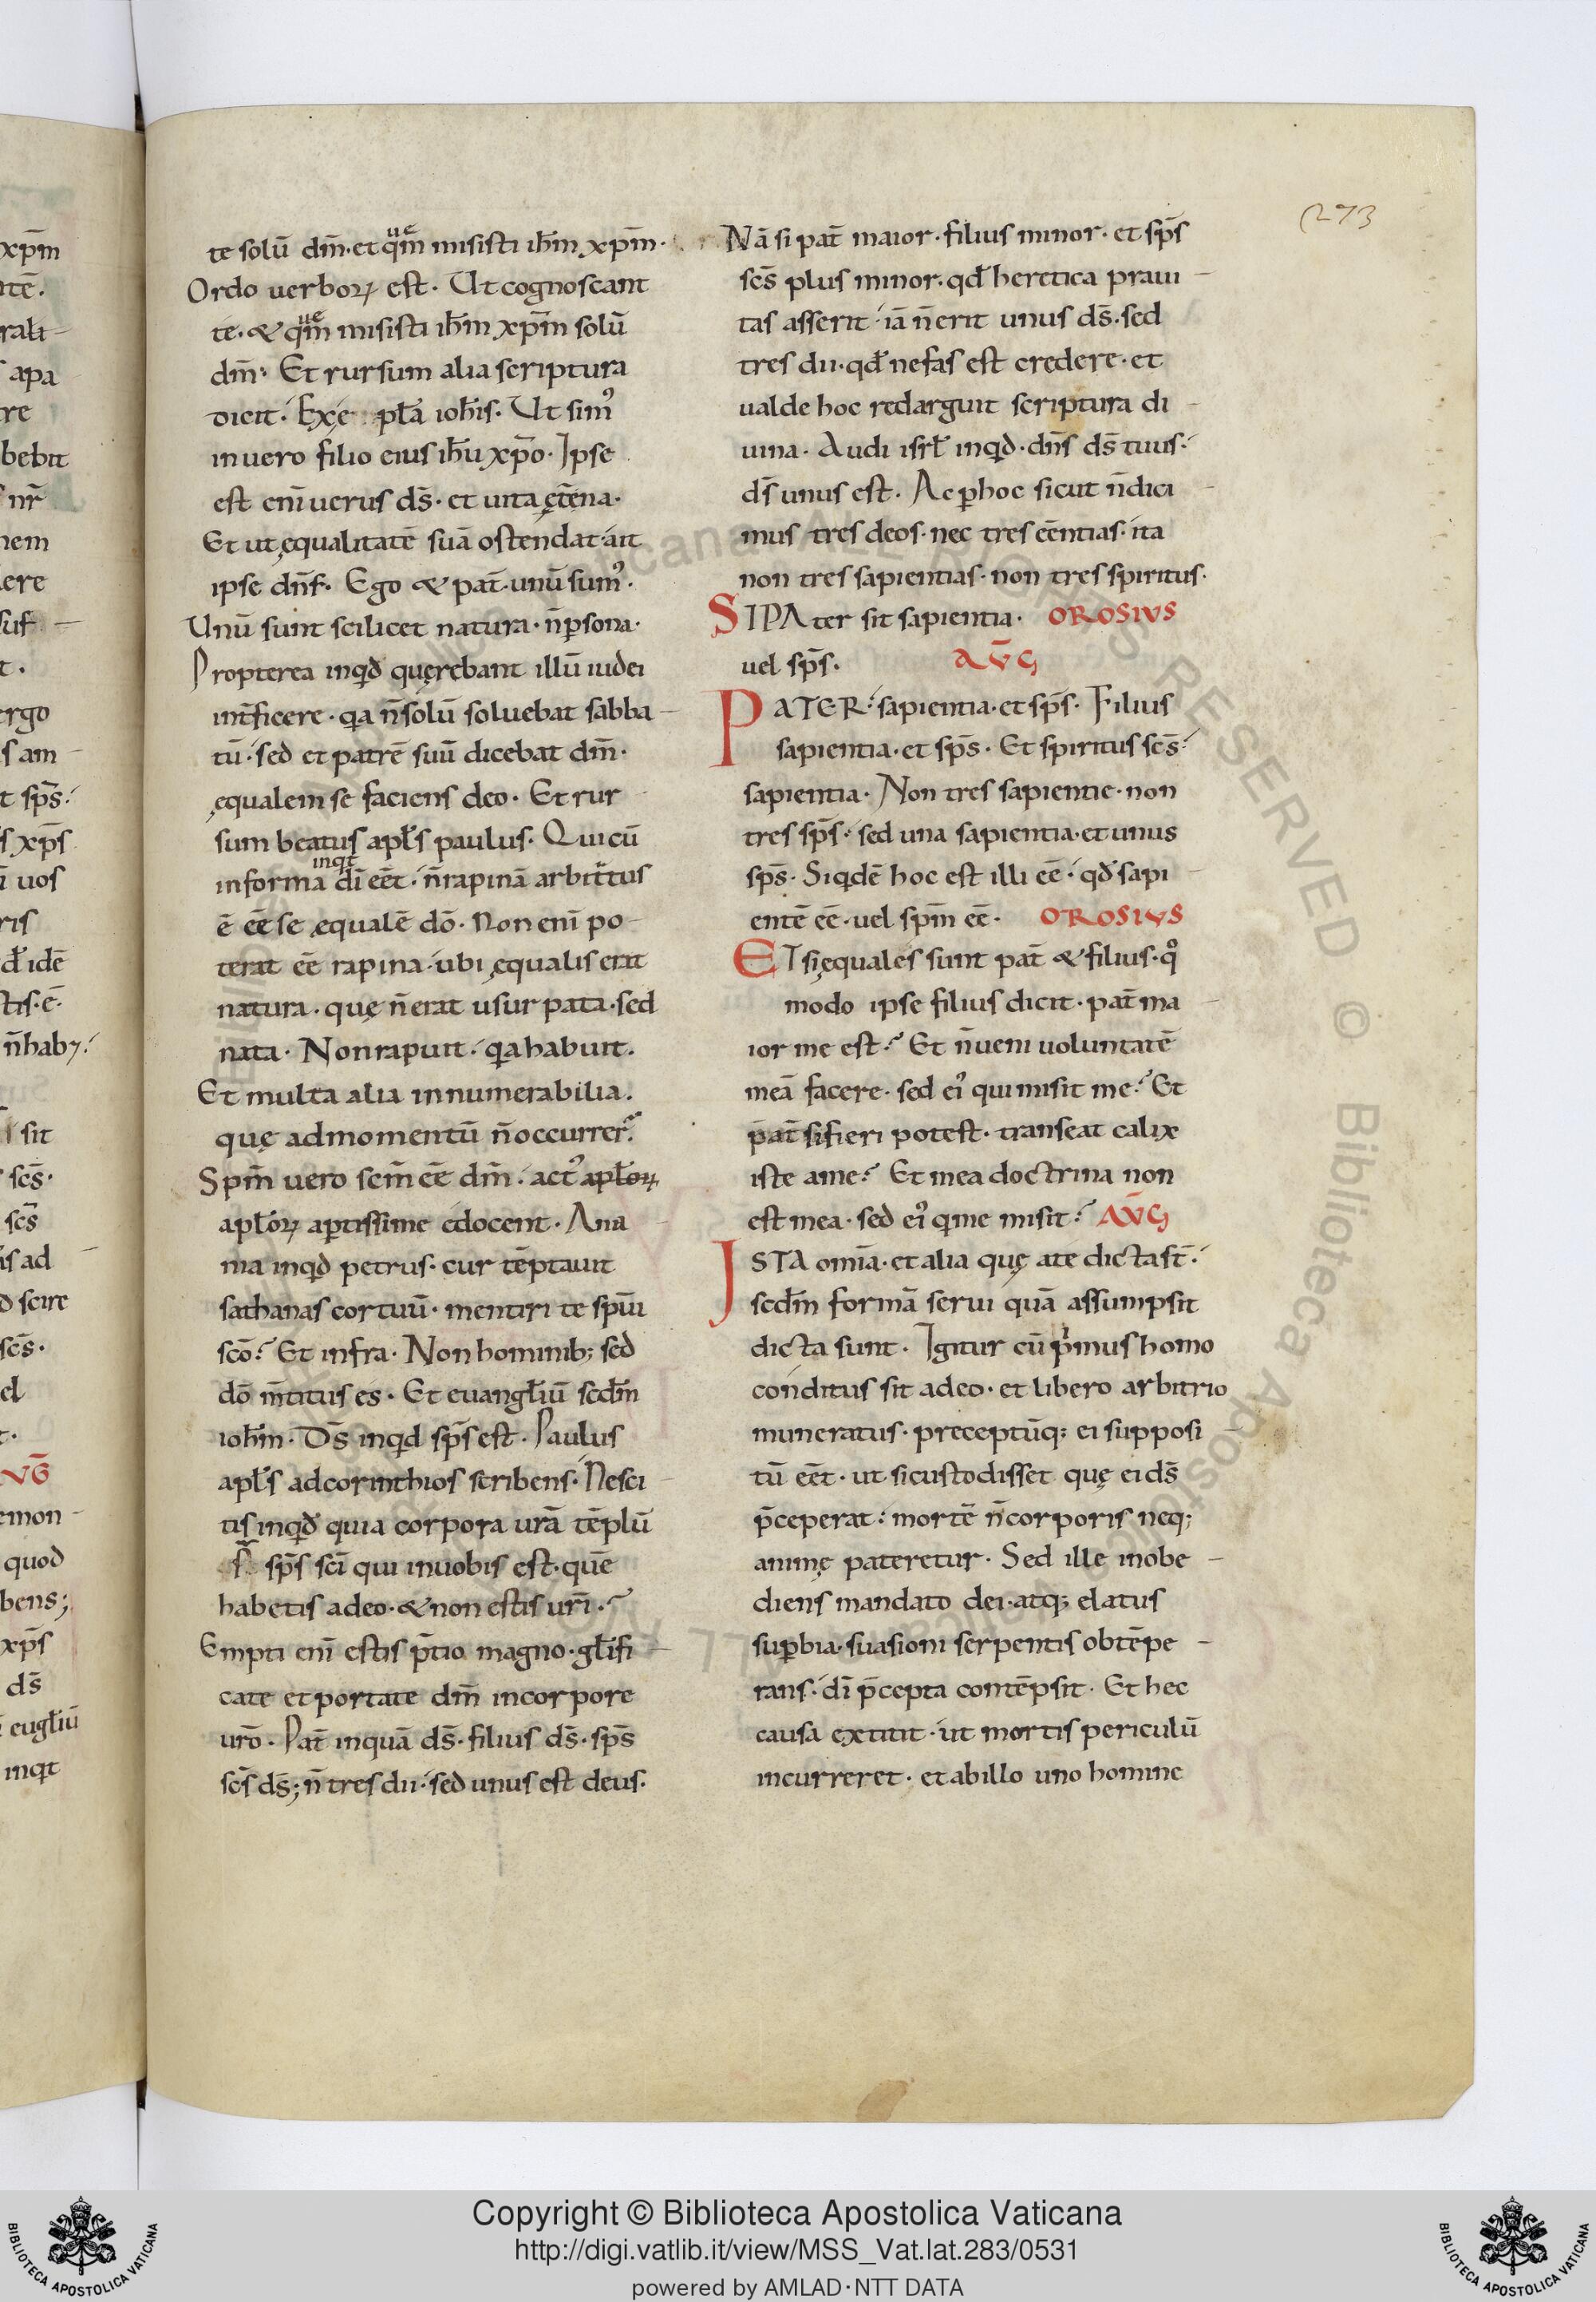 273
te solū dm̄·et q̄m̄ misisti ihm̄ xpm̄·
Ordo uerboꝝ est· Ut cognoscant
te·& q̄m̄ misisti ihm̄ xpm̄ solū
dm̄· Et rursum alia scriptura
dicit· ioh̄is· Ut sim᾿
inuero filio eius ih̄u xp̄o· Ipse
est eni᷈ uerus ds̄· et uita ęt̄ena·
Et ut ęqualitatē suā ostendat·ait
ipse dn̄s· Ego & pat̄·unū sum᾿·
Unū sunt scilicet natura· n̄ ꝑsona·
Propterea inqd̄ quęrebant illū iudei
int̄ficere· qa n̄ solū soluebat sabba–
tū· sed et patrē suū dicebat dm̄·
ęqualem se faciens deo· Et rur
sum beatus apl̄s paulus· Qui cū
inqt
informa dī eēt· n̄ rapinā arbit̄tus
ē eē se ęqualē dō· Non enī po–
terat eē rapina· ubi ęqualis erat
natura· quę n̄ erat usurpata·sed
nata· Non rapuit· qa habuit·
Et multa alia innumerabilia·
quę admomentū n̄ occurrer̄·
Spm̄ uero scm̄ eē dm̄· act᾿ apl̄oꝝ
apl̄oꝝ aꝑtissime edocent· Ana–
nia inqd̄ petrus· cur tēptauit
sathanas cortuū· mentiri te spūi
scō? Et infra· Non hominib; sed
dō m̄titus es· Et euangl̄iū scdm̄
ioh̄m· Ds̄ inqd sp̄s est· Paulus
apl̄s adcorinthios scribens· Nesci–
tis inqd̄ quia corpora ur̄a tēplū
sp̄s sc̄i qui inuobis est·quē
habetis adeo·& non estis ur̄i·?
Empti enī estis p̄tio magno·gl̄ifi–
cate et portate dm̄ incorpore
ur̄o· Pat̄ inquā ds̄·filius ds̄·sp̄s
sc̄s ds̄; n̄ tres dii·sed unus est deus·
Nā si pat̄ maior·filius minor·et sp̄s
sc̄s plus minor·qd̄ heretica praui–
tas asserit· iā n̄ erit unus ds̄·sed
tres dii·qd̄ nefas est credere·et
ualde hoc redarguit scriptura di–
uina· Audi isrl̄ inqd·dn̄s ds̄ tuus·
ds̄ unus est· Ac ꝑhoc sicut n̄ dici–
mus tres deos·nec tres eēntias·ita
non tres sapientias·non tres spiritus·
SI PAter sit sapientia· OROSIVS
uel sp̄s· AV̄G
PATER· sapientia·et sp̄s· Filius
sapientia·et sp̄s· Et spiritus sc̄s·
sapientia· Non tres sapientie·non
tres sp̄s· sed una sapientia·et unus
sp̄s· Siqdē hoc est illi eē· qd̄ sapi–
entē eē·uel spm̄ eē· OROSIVS
ET si ęquales sunt pat̄ & filius·qͦ
modo ipse filius dicit·pat̄ ma–
ior me est? Et n̄ ueni uoluntatē
meā facere·sed ei᾿ qui misit me? Et
pat̄ si fieri potest·transeat calix
iste ame? Et mea doctrina non
est mea·sed ei᾿ qme misit? AV̄G
ISTA omīa·et alia quę ate dicta st̄·
scdm̄ formā serui quā assumpsit
dicta sunt· Igitur cū pͥmus homo
conditus sit adeo·et libero arbitrio
muneratus·preceptūq; ei supposi–
tū eēt·ut si custodisset quę ei ds̄
p̄ceperat· mortē n̄ corporis neq;
animę pateretur· Sed ille inobe–
diens mandato dei·atq; elatus
suꝑbia·suasioni serpentis obtēpe–
rans· dī p̄cepta contēpsit· Et hec
causa extitit·ut mortis periculū
incurreret·et ab illo uno homine
Copyright © Biblioteca Apostolica Vaticana
http://digi.vatlib.it/view/MSS_Vat.lat.283/0531
powered by AMLAD·NTT DATA
BIBLIOTECA APOSTOLICA VATICANA
BIBLIOTECA APOSTOLICA VATICANA